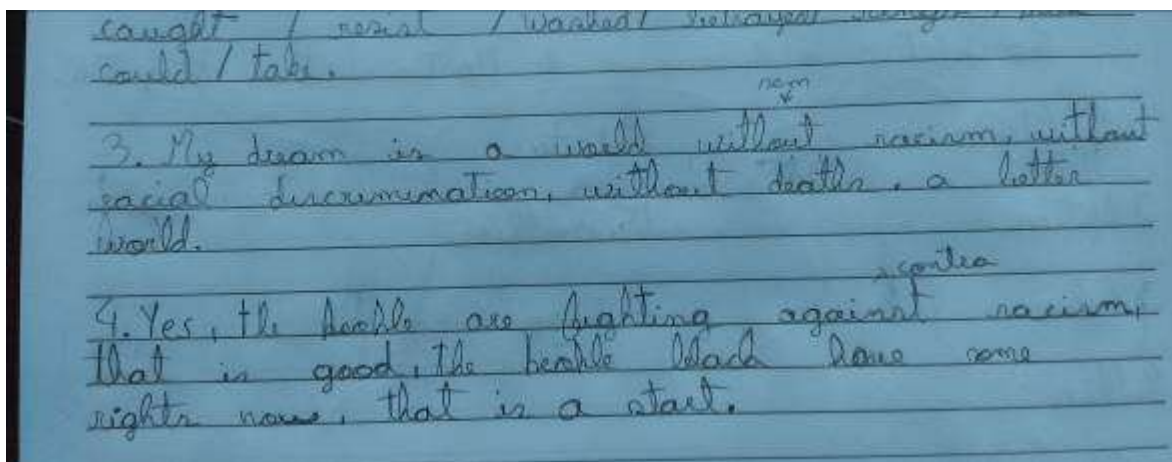 caught / resist / washed / betrayed /
could / take.
nem
3. My dream is a world without racism, without
racial discrimination, without deaths, a better
world.
contra
4. Yes, the people are fighting against racism,
that is good, the people black have some
rights now, that is a start.